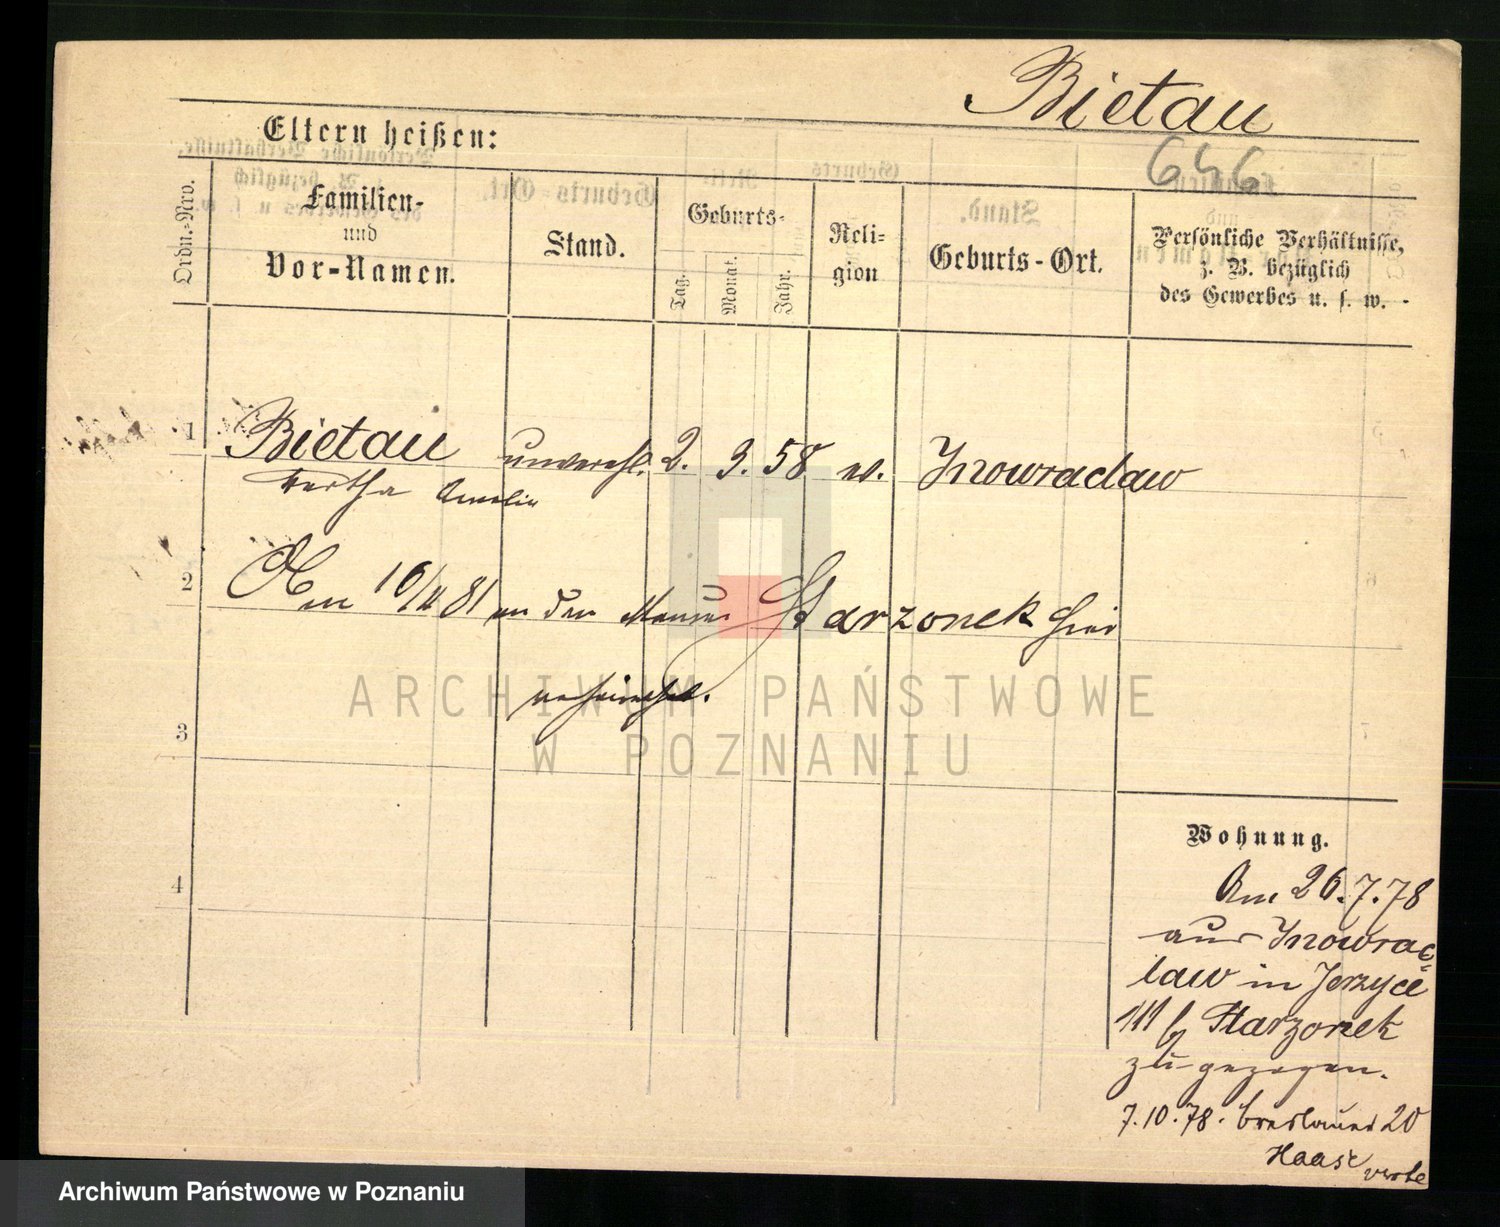 Bietau
646
Eltern heißen:
Ordn.-Nro.
Familien-
und
Vor-Namen.
Stand.
Geburts-
Tag.
Monat.
Jahr.
Reli-
gion
Geburts-Ort.
Persönliche Verhältnisse,
z. B. bezüglich
des Gewerbes u. s. w.
1 Bietau unverehl. 2. 3. 58 ev. Inowraclaw
Bertha Amalie
2 Am 16/4 81 an den Maurer Starzonek hier
verheirathet.
3
4
Wohnung.
Am 26.7.78
aus Inowrac-
law in Jerzyce
111 b Starzonek
zugezogen.
7.10.78. Breslauer 20
Haase
ARCHIWUM PAŃSTWOWE
W POZNANIU
Archiwum Państwowe w Poznaniu